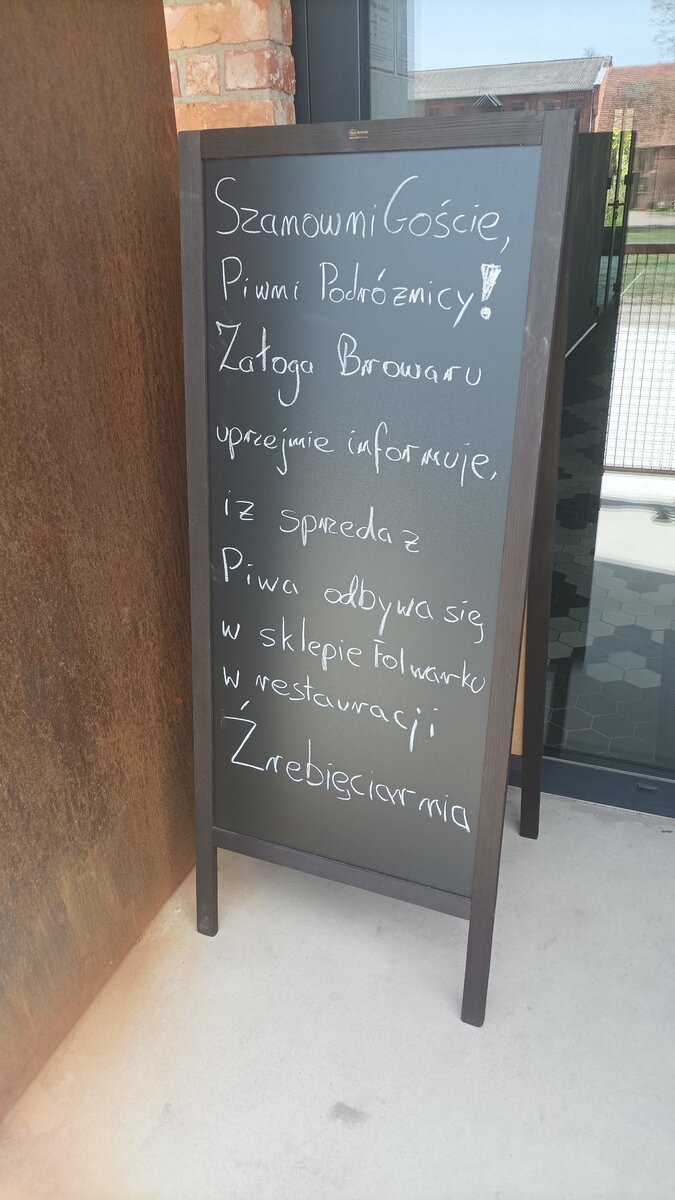 Szanowni Goście,
Piwni Podróżnicy!
Załoga Browaru
uprzejmie informuje,
iż sprzedaż
Piwa odbywa się
w sklepie Folwarku
w restauracji
Źrebięciarnia